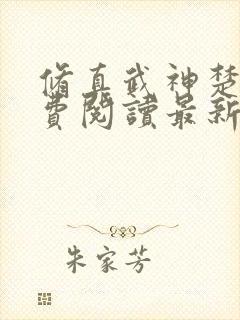 脩真武神楚
費閱讀最新
朱家芳